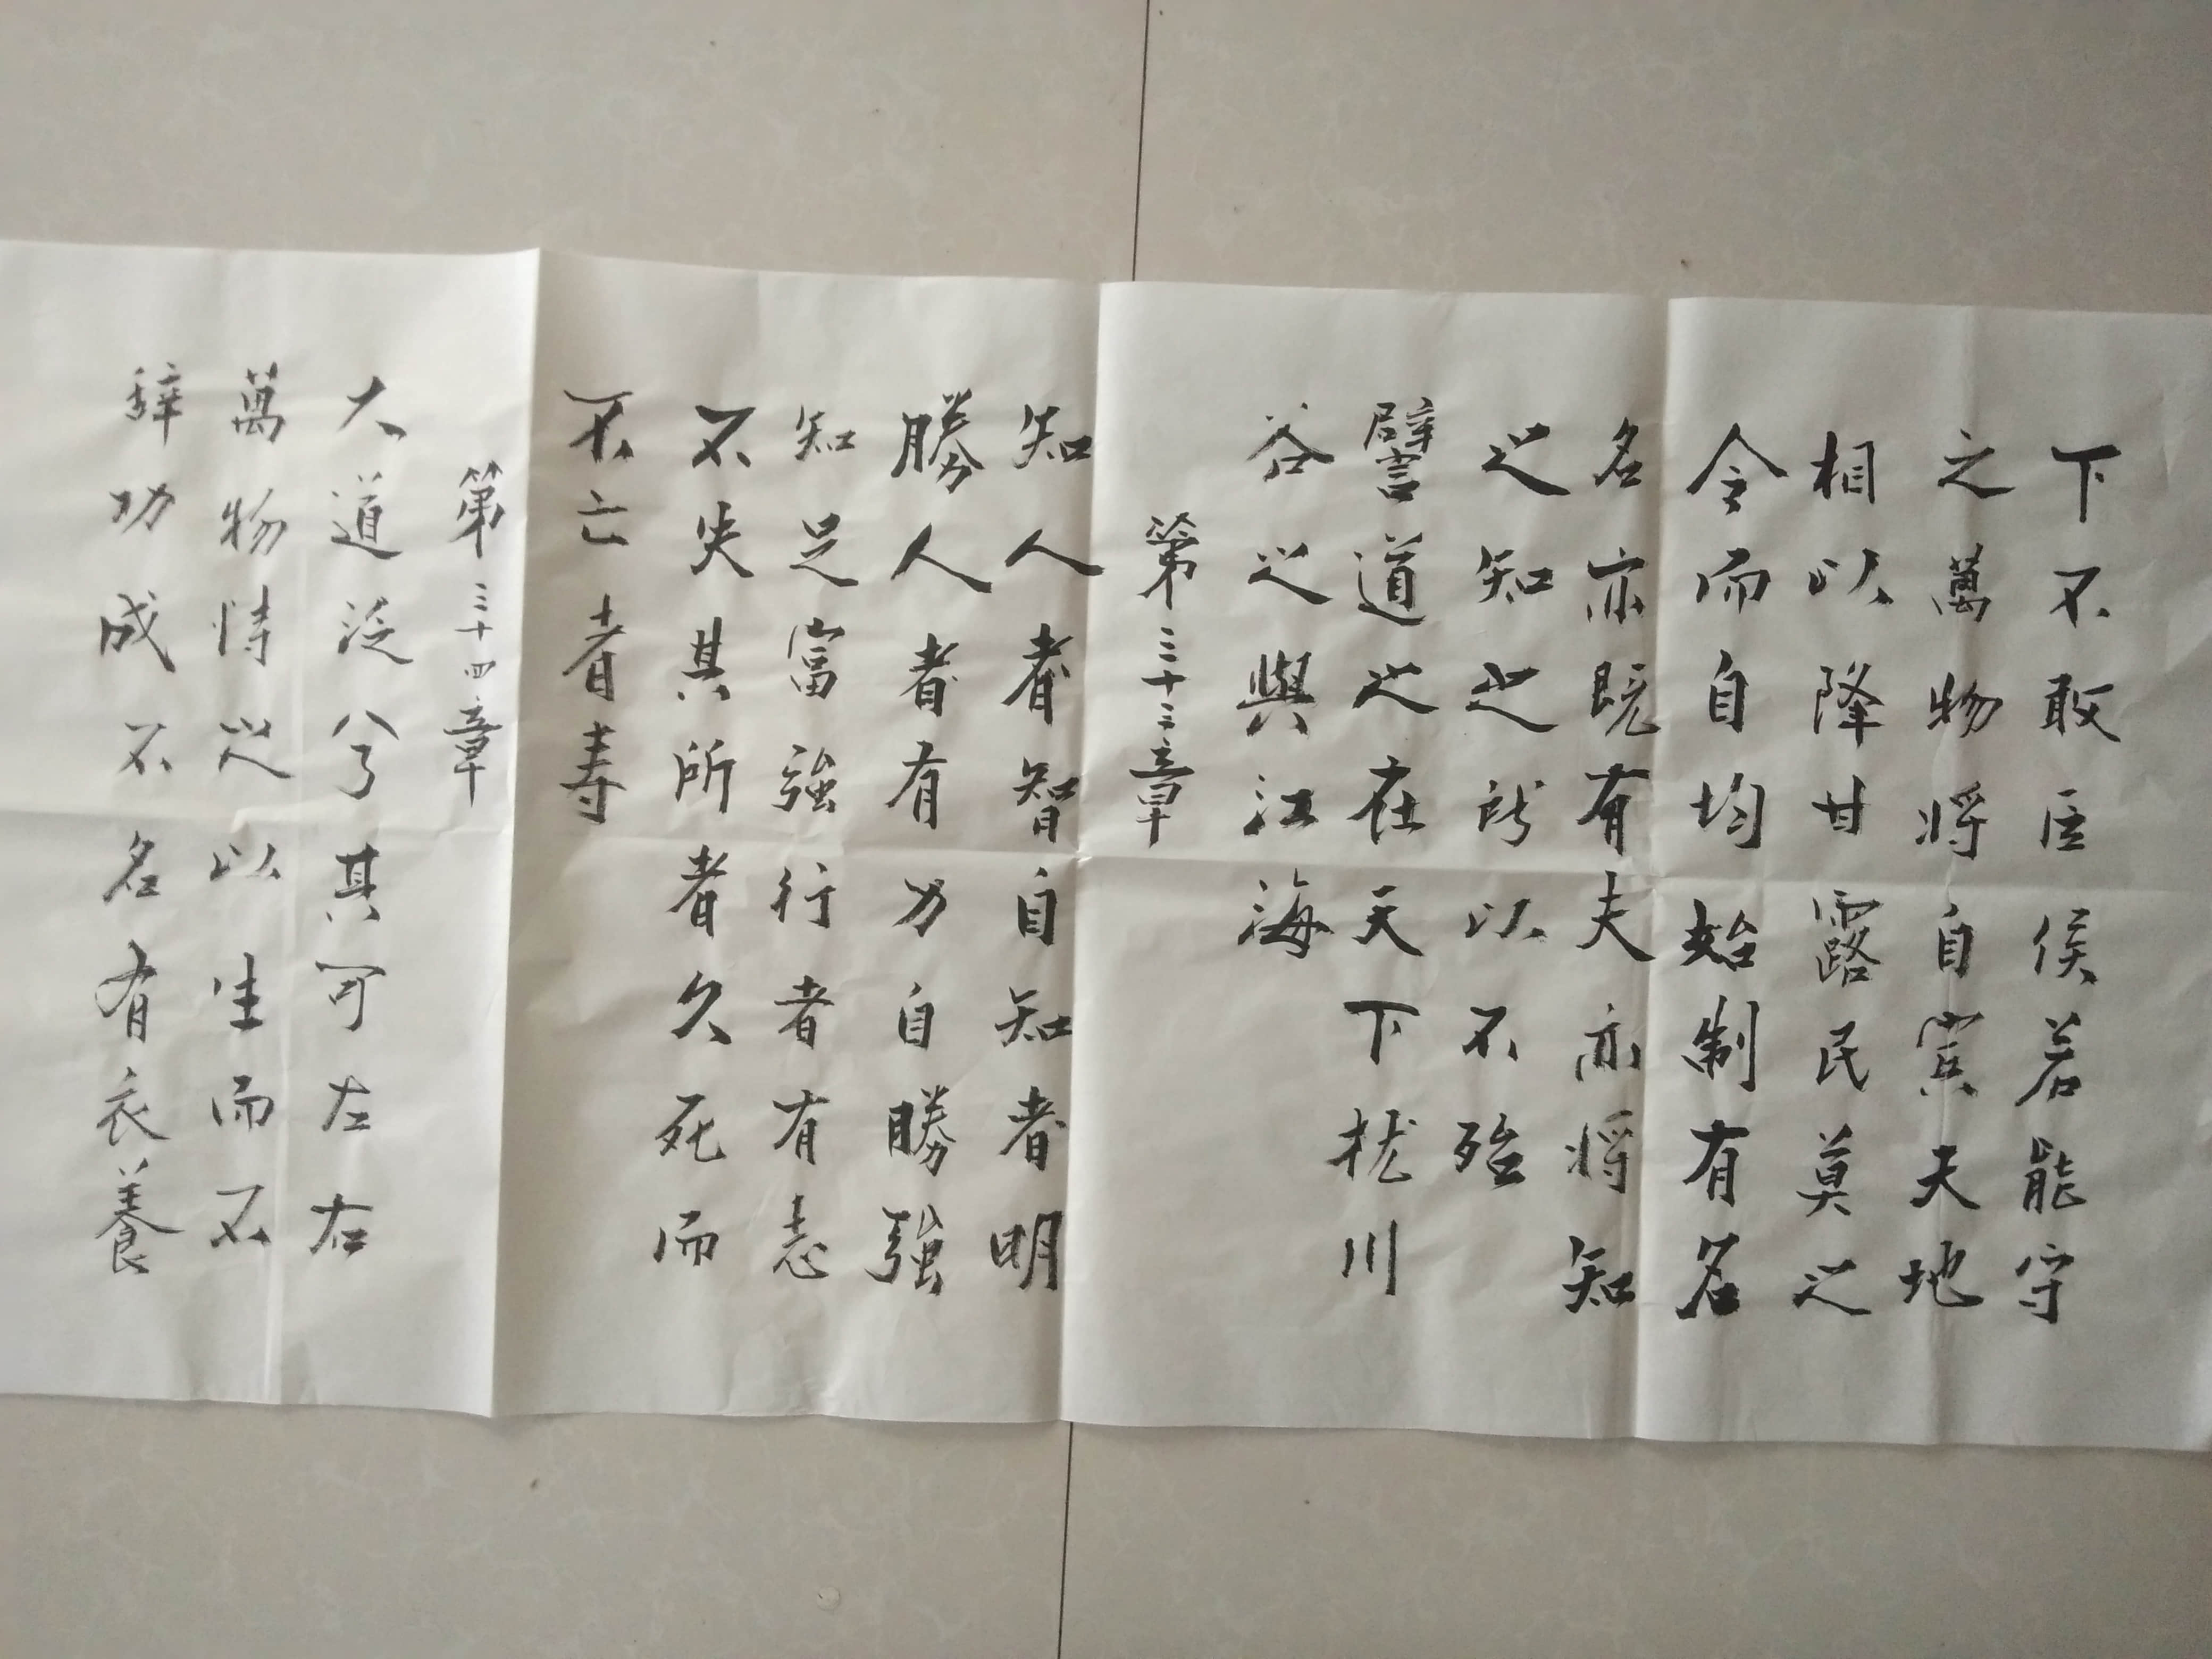 下不敢臣侯若能守
之萬物将自賓天地
相以降甘露民莫之
令而自均始制有名
名亦既有夫亦将知
之知之所以不殆
譬道之在天下犹川
谷之與江海
第三十三章
知人者智自知者明
勝人者有力自勝強
知足富強行者有志
不失其所者久死而
不亡者寿
第三十四章
大道泛兮其可左右
萬物恃之以生而不
辞功成不名有衣養